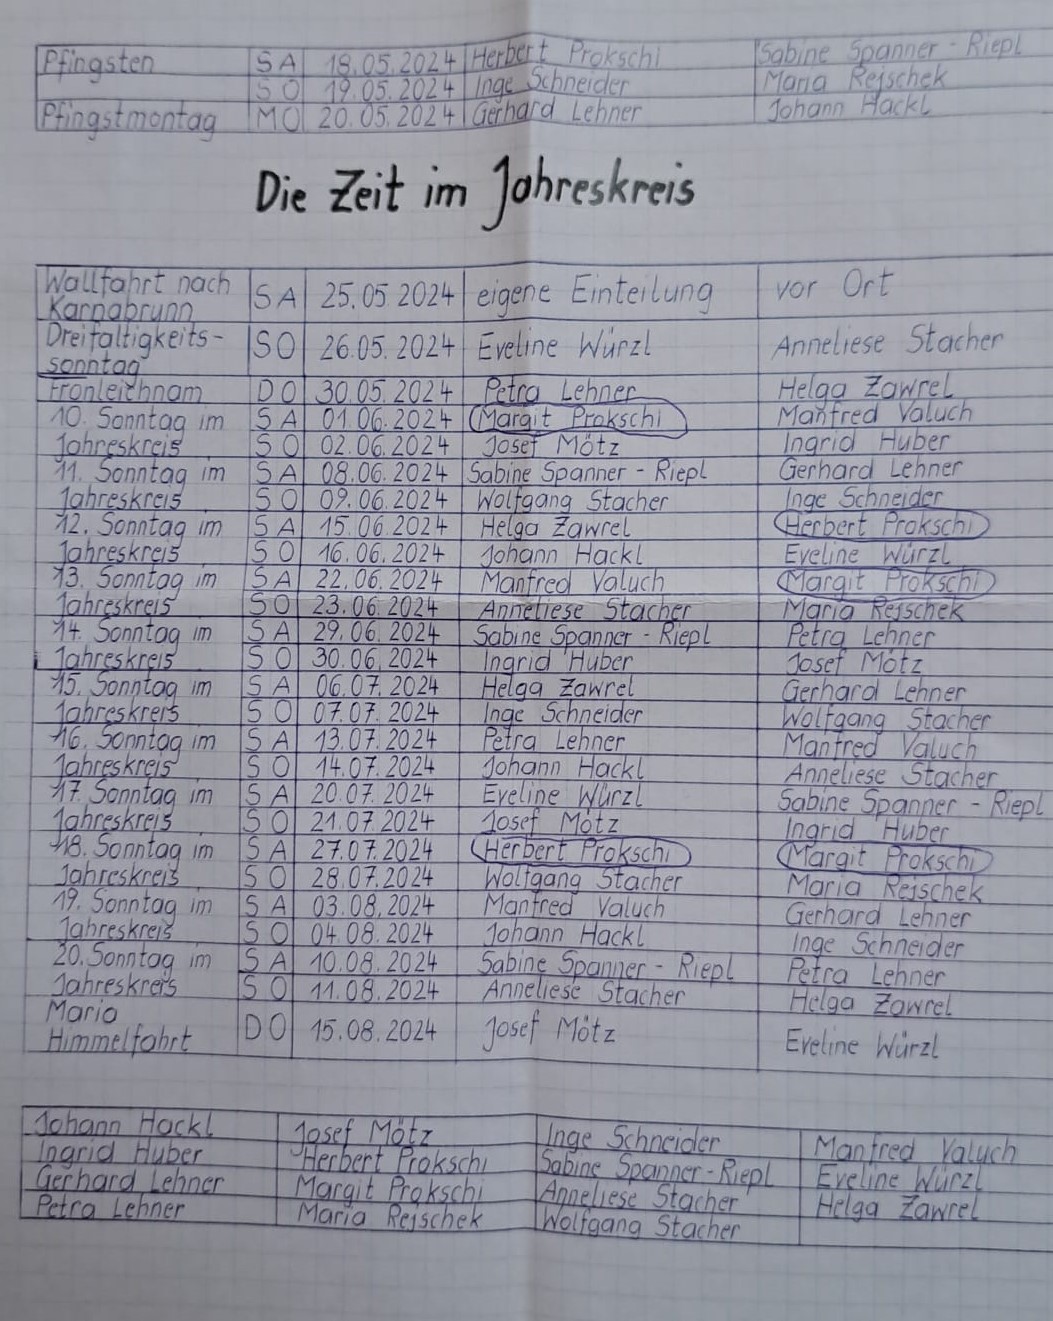 Pfingsten SA 18.05.2024 Herbert Prokschi Sabine Spanner-Riepl
SO 19.05.2024 Inge Schneider Maria Rejschek
Pfingstmontag MO 20.05.2024 Gerhard Lehner Johann Hackl
Die Zeit im Jahreskreis
Wallfahrt nach
Karnabrunn SA 25.05 2024 eigene Einteilung vor Ort
Dreifaltigkeits-
sonntag SO 26.05.2024 Eveline Würzl Anneliese Stacher
Fronleichnam DO 30.05.2024 Petra Lehner Helga Zawrel
10. Sonntag im SA 01.06.2024 Margit Prokschi Manfred Valuch
Jahreskreis SO 02.06.2024 Josef Mötz Ingrid Huber
11. Sonntag im SA 08.06.2024 Sabine Spanner-Riepl Gerhard Lehner
Jahreskreis SO 09.06.2024 Wolfgang Stacher Inge Schneider
12. Sonntag im SA 15.06.2024 Helga Zawrel Herbert Prokschi
Jahreskreis SO 16.06.2024 Johann Hackl Eveline Würzl
13. Sonntag im SA 22.06.2024 Manfred Valuch Margit Prokschi
Jahreskreis SO 23.06.2024 Anneliese Stacher Maria Rejschek
14. Sonntag im SA 29.06.2024 Sabine Spanner-Riepl Petra Lehner
Jahreskreis SO 30.06.2024 Ingrid Huber Josef Mötz
15. Sonntag im SA 06.07.2024 Helga Zawrel Gerhard Lehner
Jahreskreis SO 07.07.2024 Inge Schneider Wolfgang Stacher
16. Sonntag im SA 13.07.2024 Petra Lehner Manfred Valuch
Jahreskreis SO 14.07.2024 Johann Hackl Anneliese Stacher
17. Sonntag im SA 20.07.2024 Eveline Würzl Sabine Spanner-Riepl
Jahreskreis SO 21.07.2024 Josef Mötz Ingrid Huber
18. Sonntag im SA 27.07.2024 Herbert Prokschi Margit Prokschi
Jahreskreis SO 28.07.2024 Wolfgang Stacher Maria Rejschek
19. Sonntag im SA 03.08.2024 Manfred Valuch Gerhard Lehner
Jahreskreis SO 04.08.2024 Johann Hackl Inge Schneider
20. Sonntag im SA 10.08.2024 Sabine Spanner-Riepl Petra Lehner
Jahreskreis SO 11.08.2024 Anneliese Stacher Helga Zawrel
Maria
Himmelfahrt DO 15.08.2024 Josef Mötz Eveline Würzl
Johann Hackl Josef Mötz Inge Schneider Manfred Valuch
Ingrid Huber Herbert Prokschi Sabine Spanner-Riepl Eveline Würzl
Gerhard Lehner Margit Prokschi Anneliese Stacher Helga Zawrel
Petra Lehner Maria Rejschek Wolfgang Stacher